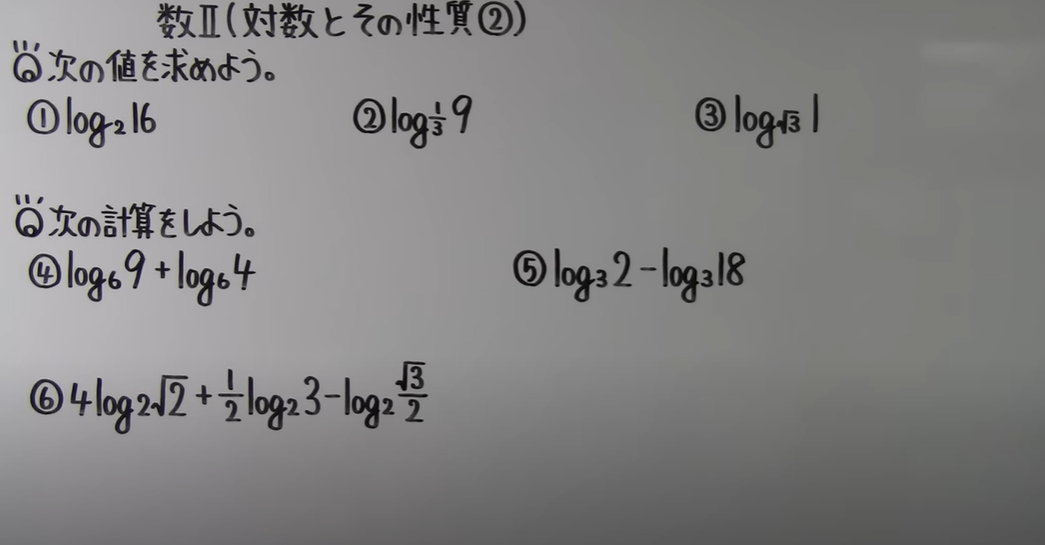 数Ⅱ(対数とその性質②)
Q次の値を求めよう。
①log₂16 ②log_{1/3}9 ③log_{√3}1
Q次の計算をしよう。
④log₆9+log₆4 ⑤log₃2-log₃18
⑥4log₂√2+1/2log₂3-log₂√3/2